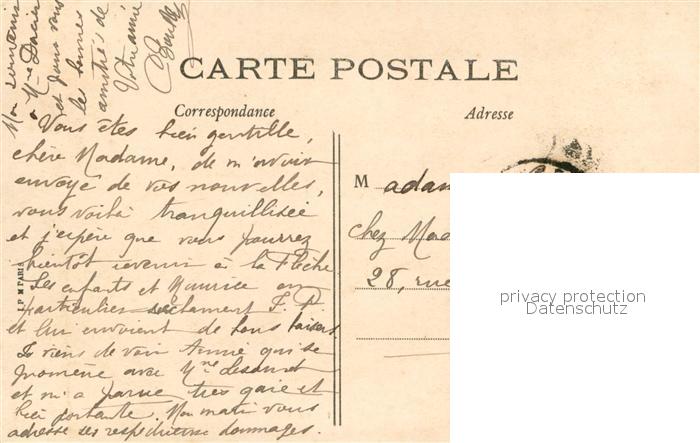 Mon souvenir
à Mme Dacier
et pour vous
les bonnes
amitiés de
Votre amie
CARTE POSTALE
Correspondance
Adresse
Vous êtes bien gentille,
chère Madame, de m'avoir
envoyé de vos nouvelles,
vous voilà tranquillisée
et j'espère que vous pourrez
bientôt revenir à la Flèche
Les enfants et Maurice en
particulier réclament
et lui envoient de bons baisers
Je viens de voir Annie qui se
promène avec Mme
et m'a parue très gaie et
bien portante. Mon mari vous
adresse ses respectueux hommages.
M adam
chez Mad
28, rue
P M PARIS
privacy protection
Datenschutz